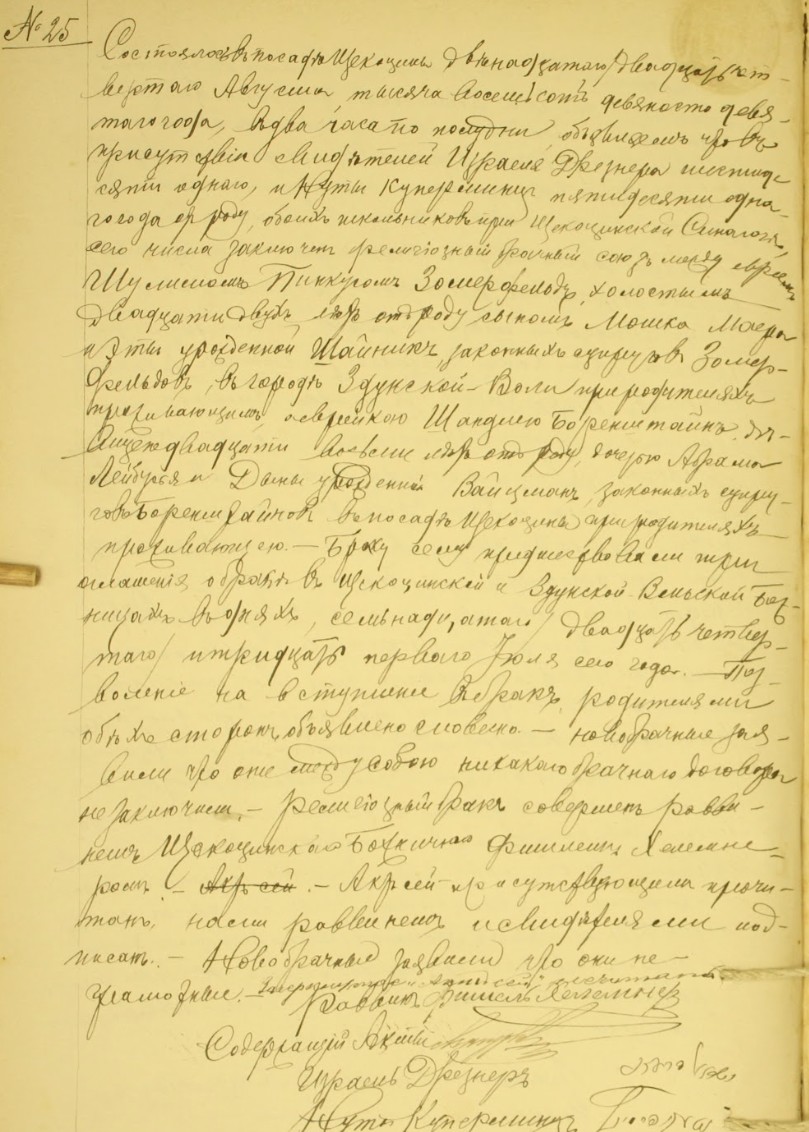 № 25
Состоялось въ посадѣ Щекоцины двѣнадцатаго/двадцать чет-
вертаго Августа, тысяча восемьсотъ девяносто девя-
таго года, въ два часа по полудни, объявляемъ что въ
присутствіи свидѣтелей Израеля Дрезнера шестиде-
сяти одного, и Нуты Куперминца пятидесяти одна-
го года отъ роду, обоихъ школьниковъ при Щекоцинской Синагогѣ,
сего числа заключенъ религіозный брачный союзъ между евреемъ
Шулимомъ Пинкусомъ Зомерфельдъ, холостымъ
двадцати двухъ лѣтъ отъ роду сыномъ Мошка Маера
и Эты урожденной Шайникъ законныхъ супруговъ Зомер-
фельдовъ, въ городѣ Здунской-Воли при родителяхъ
проживающимъ, и еврейкою Шандлею Боренштайнъ, дѣ-
вицею двадцати восьми лѣтъ отъ роду, дочерью Абрама
Лейбуся и Дыны урожденной Вайцманъ, законныхъ супру-
говъ Боренштайновъ въ посадѣ Щекоцины при родителяхъ
проживающею. — Браку сему предшествовали три
оглашенія о бракѣ въ Щекоцинской и Здунской-Вольской Бож-
ницахъ въ дняхъ, семнадцатаго/ двадцать четвер-
таго/ и тридцать перваго Іюля сего года. — Поз-
воленіе на вступленіе въ бракъ родителями
обѣихъ сторонъ объявлено словесно. — Новобрачные зая-
вили что они между собою никакого брачнаго договора
не заключили. — Религіозный бракъ совершенъ равви-
номъ Щекоцинской Божницы Фишлемъ Хелемне-
ромъ. — Актъ сей. — Актъ сей присутствующимъ прочи-
танъ, нами раввиномъ и свидѣтелями под-
писанъ. — Новобрачные заявили что они не-
грамотные. —
Раввинъ Фишель Хелемнеръ
Содержащій Акты
Израель Дрезнеръ
Нута Куперминцъ